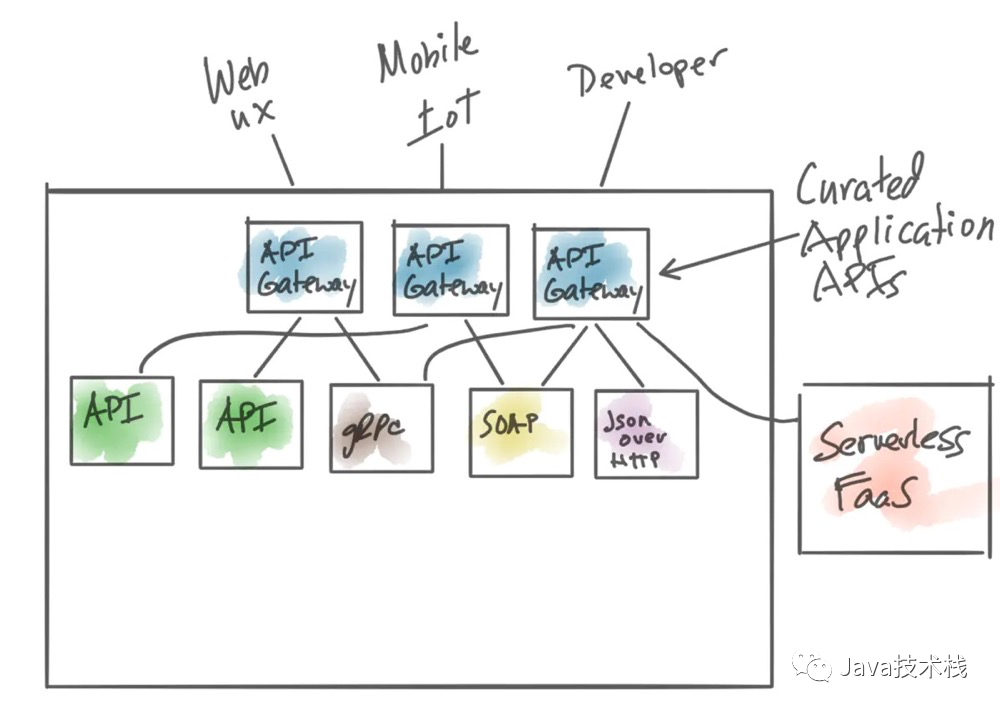 Web
ux
Mobile
IoT
Developer
Curated
Application
APIs
API
Gateway
API
Gateway
API
Gateway
API
API
gRPC
SOAP
Json
over
HTTP
Serverless
FaaS
Java技术栈